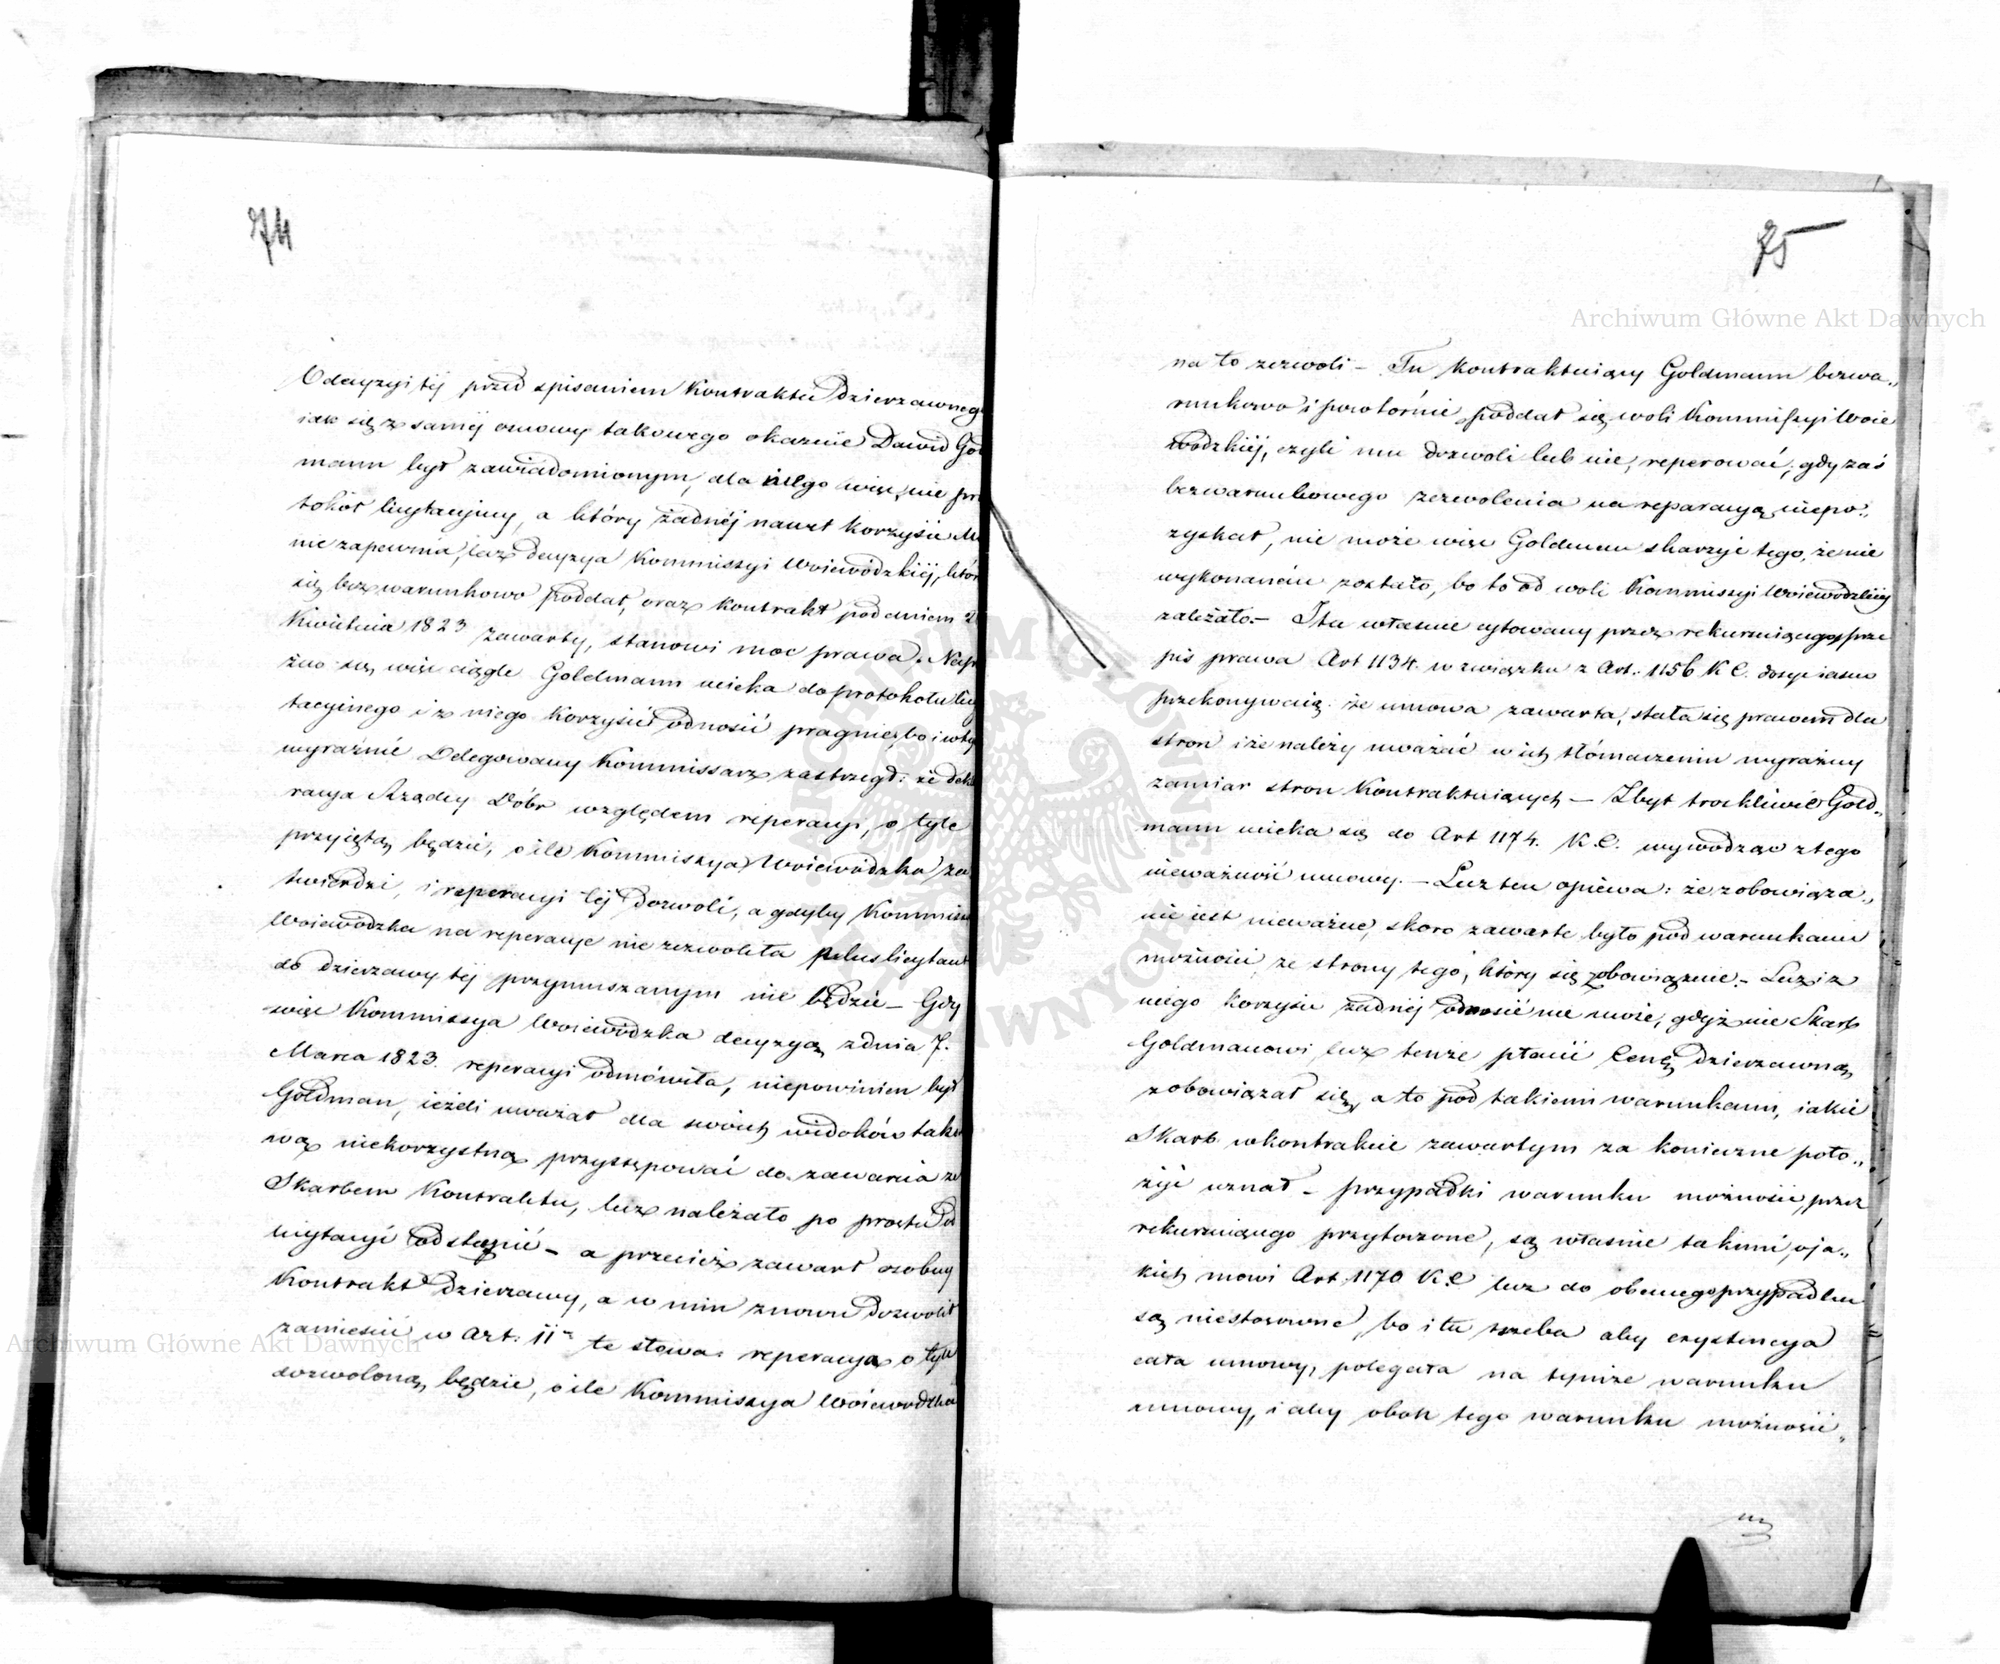 74
O decyzyi téj przed spisaniem Kontraktu Dzierzawneg
iak się z saméj osnowy takowego okazuie Dawid Gol
mann był zawiadomionym, dla niego więc, nie pro
tokół licytacyiny, a który żadnéj nawet korzyści Mu
nie zapewnia, lecz decyzya Kommissyi Woiewódzkiéj, któr
się bezwarunkowo poddał, oraz Kontrakt pod dniem 2
Kwietnia 1823 zawarty, stanowi moc prawa. Napr
żno się więc ciągle Goldmann ucieka do protokołu licy
tacyinego i z niego korzyści odnosić pragnie, bo i w ty
wyraźnie Delegowany Kommissarz zastrzegł: że dekla
racya Rządcy Dóbr względem reperacyi, o tyle
przyiętą będzie, o ile Kommissya Woiewódzka za
twierdzi, i reperacyi téj dozwoli, a gdyby Kommiss
Woiewódzka na reperacye nie zezwoliła pluslicytant
do dzierzawy téj przymuszanym nie będzie – Gdy
więc Kommissya Woiewódzka decyzyą z dnia 7.
Marca 1823. reperacyi odmówiła, niepowinien był
Goldman, ieżeli uważał dla swoich widoków tako
wą niekorzystną przystępować do zawarcia ze
Skarbem Kontraktu, lecz należało po prostu od
licytacyi odstąpić – a przecież zawarł osobny
Kontrakt dzierzawy, a w nim znowu dozwolił
zamieścić w Art: 11 te słowa: reperacya o tyle
dozwoloną będzie, o ile Kommissya Woiewódzka
75
Archiwum Główne Akt Dawnych
na to zezwoli – Tu kontraktuiący Goldmann bezwa„
runkowo i powtórnie poddał się woli Kommissyi Woie
wódzkiéj, czyli mu dozwoli lub nie, reperować; gdy zaś
bezwarunkowego zezwolenia na reparacyą niepo„
zyskał, nie może więc Goldman skarżyć tego, że nie
wykonanem zostało, bo to od woli Kommissyi Woiewódzkiéj
zależało. – I tu właśnie cytowany przez rekuruiącego prze
pis prawa Art 1134. w związku z Art: 1156 K C. dosyć iasno
przekonywaią: że umowa zawarta, stała się prawem dla
stron i że należy uważać w ich tłómaczeniu wyraźny
zamiar stron kontraktuiących – Zbyt troskliwie Gold„
mann ucieka się do Art 1174. K. C. wywodząc z tego
nieważność umowy. – Lecz ten opiewa: że zobowiąza„
nie iest nieważne, skoro zawarte było pod warunkami
możności ze strony tego, który się zobowiązuie. – Lecz i z
niego korzyści żadnéj odnosić nie może, gdyż nie Skarb
Goldmanowi lecz tenże płacić cenę dzierzawną
zobowiązał się, a to pod takiemi warunkami, iakie
Skarb w kontrakcie zawartym za konieczne poło„
żyć uznał – przypadki warunku możności, przez
rekuruiącego przytoczone, są właśnie takimi, o ia„
kich mowi Art. 1170 K. C lecz do obecnego przypadku
są niestosowne, bo i tu trzeba aby exystencya
cała umowy, polegała na tymże warunku
umowy, i aby obok tego warunku możności„
ARCHIWUM GŁÓWNE AKT DAWNYCH
Archiwum Główne Akt Dawnych